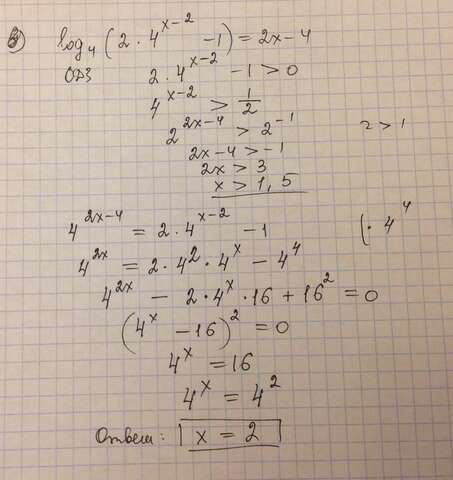 в) log₄(2 · 4^(x−2) − 1) = 2x − 4
ОДЗ 2 · 4^(x−2) − 1 > 0
4^(x−2) > 1/2
2^(2x−4) > 2^(−1) 2 > 1
2x − 4 > −1
2x > 3
x > 1,5
4^(2x−4) = 2 · 4^(x−2) − 1 (· 4^4
4^(2x) = 2 · 4^2 · 4^x − 4^4
4^(2x) − 2 · 4^x · 16 + 16^2 = 0
(4^x − 16)^2 = 0
4^x = 16
4^x = 4^2
Ответ: x = 2